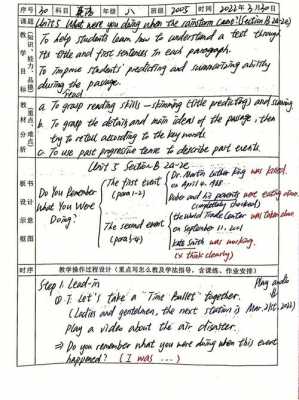 序号 30 科目 英语 年级 八 班级 2005 时间 2022年3月30日
课题 Unit5 What were you doing when the rainstorm came? (Section B 2a-2e)
To help students learn how to understand a text through
its title and first sentences in each paragraph.
To improve students' predicting and summarizing ability
during the passage.
read
a. To grasp reading skills — skimming (title predicting) and scanning
b. To grasp the details and main ideas of the passage, then
try to retell according to the key words.
c. To use past progressive tense to describe past events.
Unit 5 Section B 2a-2e
Do You Remember
What You Were
Doing?
The first event
(para 1-2)
Dr. Martin Luther King was killed.
on April 4. 1968
Robert and his parents were eating dinner.
(completely shocked)
The second event
(para 3-4)
the World Trade Center was taken down
on September 11, 2001
Kate Smith was working.
(x think clearly)
板书设计示意框图
时序 教学操作过程设计（重点写怎么教及学法指导，含课练、作业安排）
Step 1. Lead-in
① T: Let's take a "Time bullet" together.
Play audio
(Ladies and gentlemen, the next station is Mar. 21st, 2022)
Play a video about the air disaster.
⇒ Do you remember what you were doing when this event
happened? (I was ...)